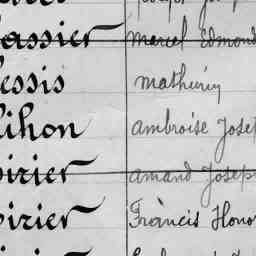 assier Marcel Edmond
essis Mathurin
ihon Ambroise Josep
oirier Amand Joseph
oirier Francis Honor